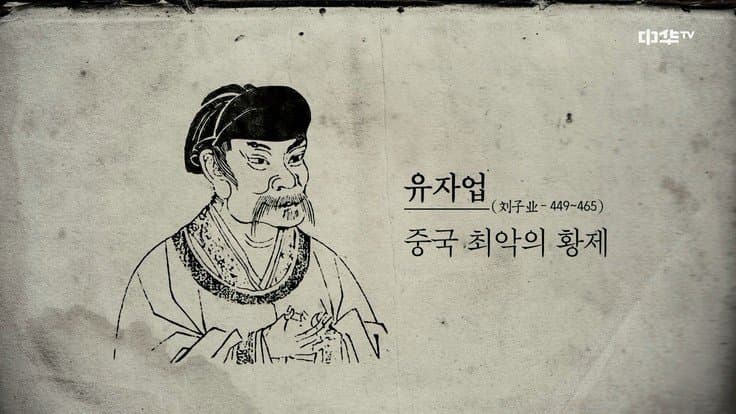 中华TV
유자업
(刘子业 - 449~465)
중국 최악의 황제